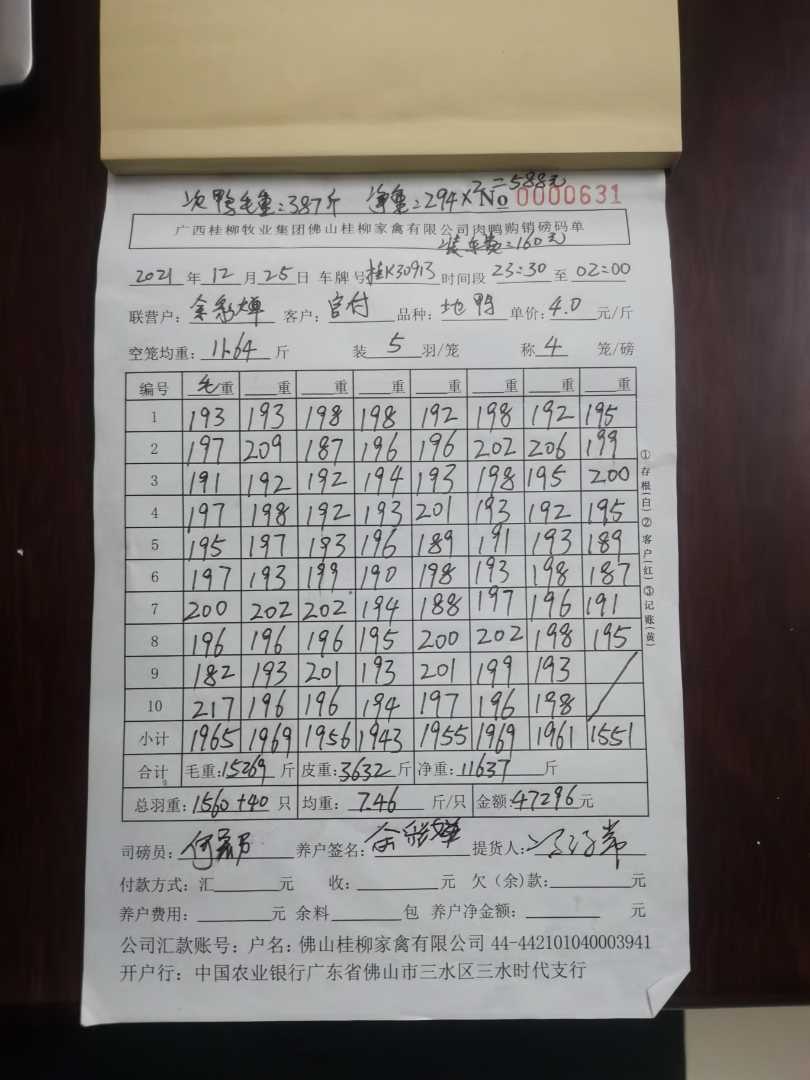 次鸭毛重:387斤 净重:294×2=588元
No 0000631
广西桂柳牧业集团佛山桂柳家禽有限公司肉鸭购销磅码单
装车费:160元
2021年12月25日 车牌号桂K30913 时间段 23:30 至 02:00
联营户: 客户:官付 品种:地鸭 单价:4.0元/斤
空笼均重:11.64斤 装5羽/笼 称4笼/磅
编号 毛重 重 重 重 重 重 重 重
1 193 193 198 198 192 198 192 195
2 197 209 187 196 196 202 206 199
3 191 192 192 194 193 198 195 200
4 197 198 192 193 201 193 192 195
5 195 197 193 196 189 191 193 189
6 197 193 199 190 198 193 198 187
7 200 202 202 194 188 197 196 191
8 196 196 196 195 200 202 198 195
9 182 193 201 193 201 199 193
10 217 196 196 194 197 196 198
小计 1965 1969 1956 1943 1955 1969 1961 1551
合计 毛重:15269斤 皮重:3632斤 净重:11637斤
总羽重:1560+40只 均重:7.46斤/只 金额:47296元
司磅员: 养户签名: 提货人:
付款方式:汇元 收:元 欠(余)款:元
养户费用:元 余料包 养户净金额:元
公司汇款账号:户名:佛山桂柳家禽有限公司 44-442101040003941
开户行:中国农业银行广东省佛山市三水区三水时代支行
①存根(白)②客户(红)③记账(黄)